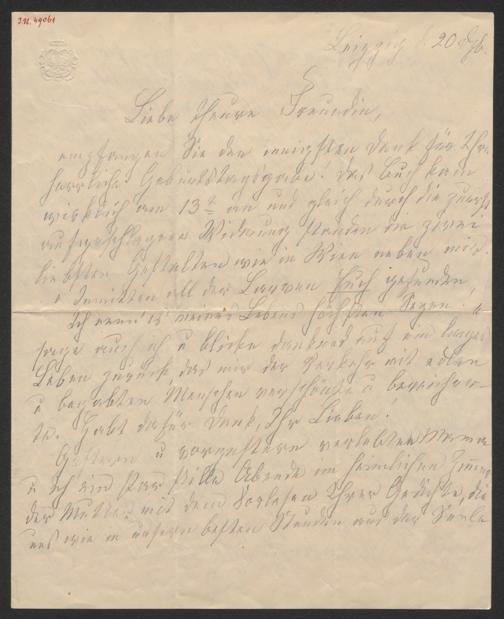 I.N. 49061
Leipzig d. 20
Liebe theure Freundin,
empfangen Sie den innigsten Dank für Ihre
herrliche Geburtstagsgabe. Das Buch kam
wirklich am 13t an und gleich durch die zuerst
aufgeschlagene Widmung standen die zwei
liebsten Gestalten wie in Wien neben mir.
"Inmitten all der Larven Euch gefunden
Ich nenn' es meines Lebens höchsten Segen."
sage auch ich u blicke dankend auf ein langes
Leben zurück das mir der Verkehr mit edlen
u begabten Menschen verschönte u bereicher-
te. Habt dafür Dank, Ihr Lieben.
Gestern u vorgestern verlebten Mama
u ich ein paar stille Abende im heimlichen Zimmer
der Mutter mit dem Vorlesen Ihrer Gedichte, die
uns wie in unsern besten Stunden aus der Seele